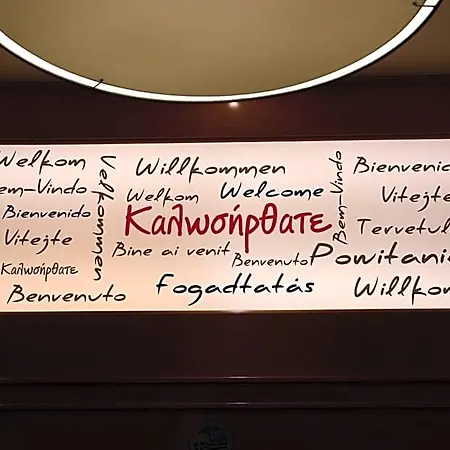 Welkom
Bem-Vindo
Bienvenido
Vitejte
Καλωσήρθατε
Benvenuto
Velkommen
Willkommen
Welkom
Welcome
Καλωσήρθατε
Bine ai venit
Benvenuto
Fogadtatás
Bem-Vindo
Bienvenid
Vitejte
Tervetul
Powitani
Willkom